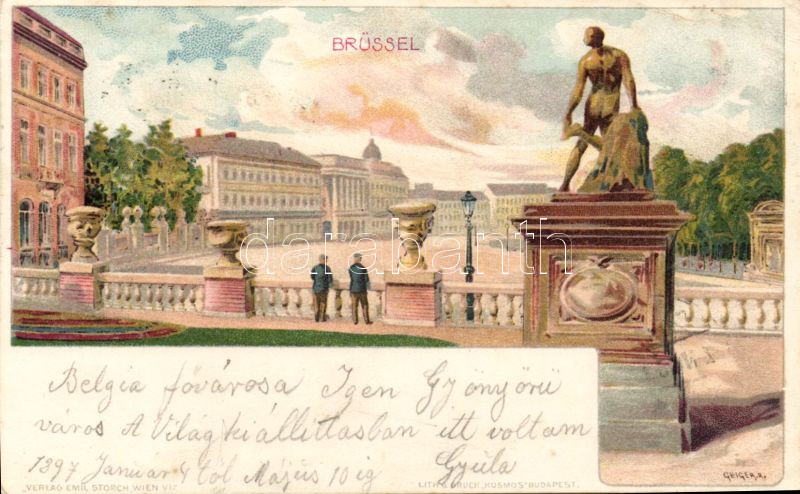 BRÜSSEL
darabanth
Belgia fővárosa Igen Gyönyörű
város A Világkiállittasban itt voltam
1897 Január 4 től Május 10 ig
Gyula
VERLAG EMIL STORCH, WIEN VI/
LITH. & DRUCK „KOSMOS" BUDAPEST.
GEIGER.R.